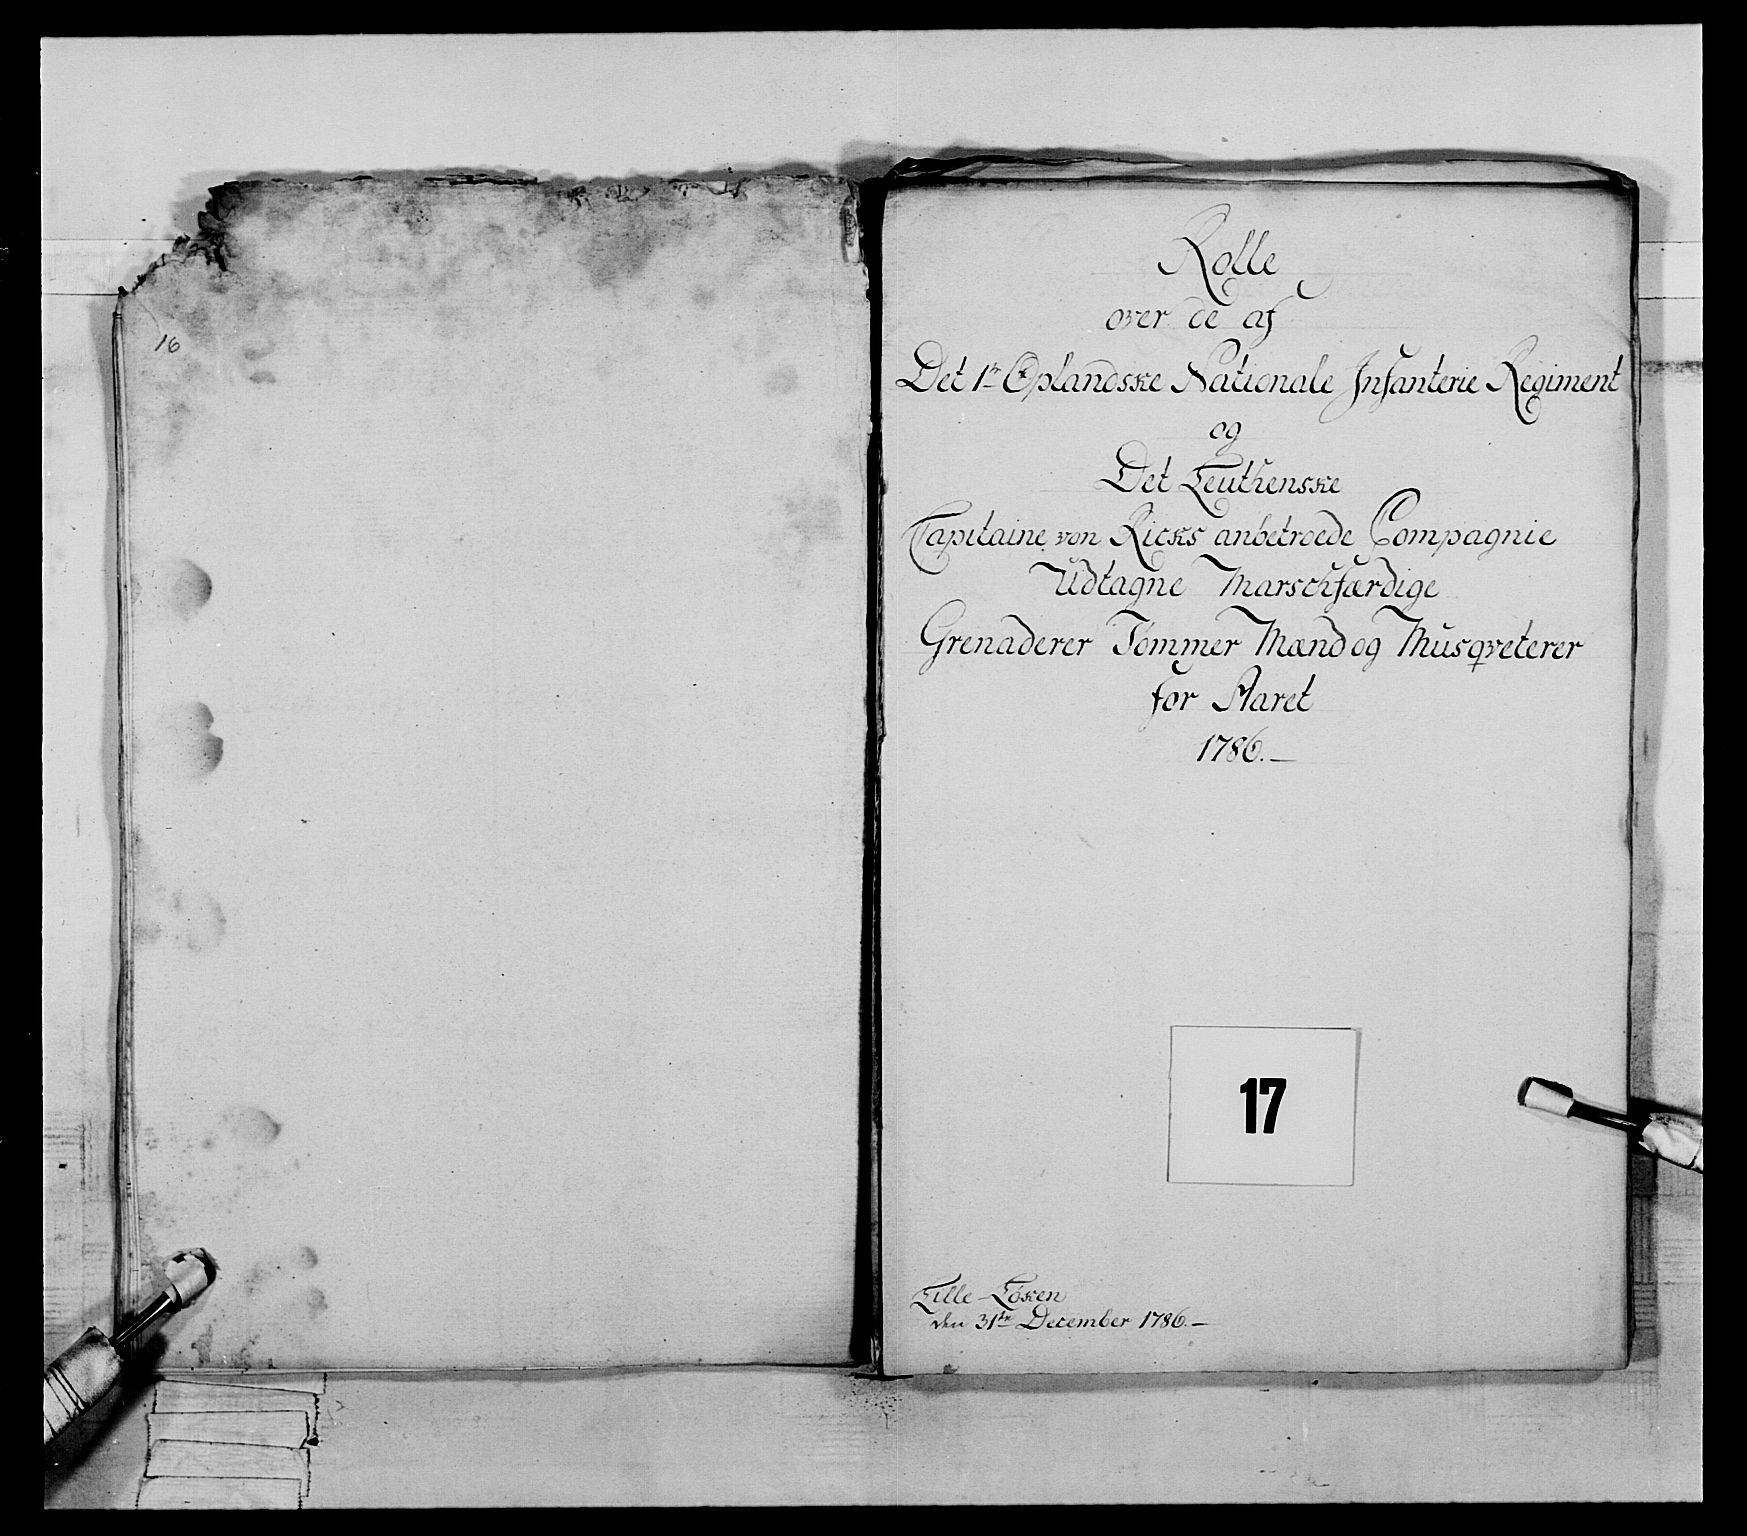 16
Rolle
over de af
Det 1ste Oplandske Nationale Infanterie Regiment
og
Det Leuthenske
Capitaine von Ricks anbetroede Compagnie
Udtagne Marschfærdige
Grenaderer Tømmer Mænd og Musqveterer
for Aaret
1786.
17
Lille-Løken
den 31te December 1786.